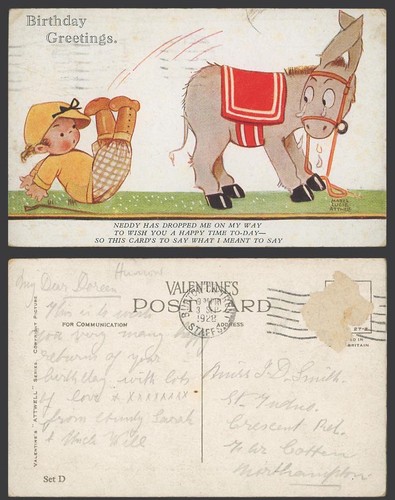 Birthday
Greetings.
MABEL
LUCIE
ATTWELL
NEDDY HAS DROPPED ME ON MY WAY
TO WISH YOU A HAPPY TIME TO-DAY—
SO THIS CARD'S TO SAY WHAT I MEANT TO SAY
VALENTINE'S
POST CARD
FOR COMMUNICATION
ADDRESS
1928
STAFFS
BRITAIN
VALENTINE'S "ATTWELL" SERIES. COPYRIGHT PICTURE
My Dear Doreen
This is to wish
you very many happy
returns of your
birthday, with lots
of love & xxxxxxxx
from Aunty Sarah
& Uncle Will
Miss J.D. Smith.
Crescent Rd.
Nr Northampton.
Set D